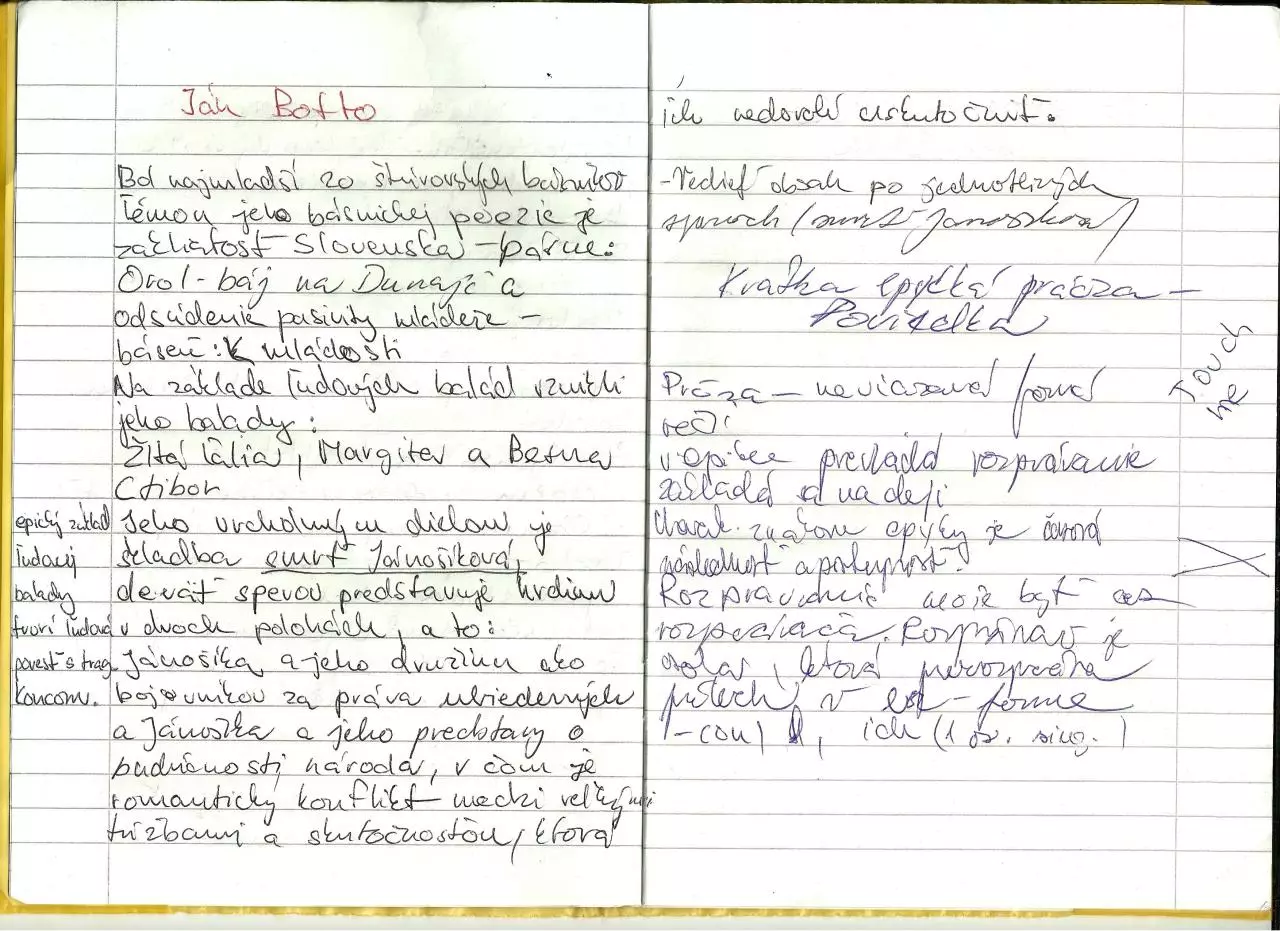 Ján Botto
Bol najmladší zo štúrovských básnikov
Témou jeho básnickej poézie je
zakliatosť Slovenska - básne:
Orol - báj na Dunaji a
odsúdenie pasivity mládeže -
báseň: K mládosti
Na základe ľudových balád vznikli
jeho balady:
Žltá ľalia, Margita a Besna
Ctibor
Jeho vrcholným dielom je
skladba smrť Jánošíková,
devät spevou predstavuje hrdinu
v dvoch polohách, a to:
Jánošíka a jeho družinu ako
bojovníkov za práva ubiedených
a Jánošíka a jeho predstavy o
budúcnosti národa, v čom je
romantický konflikt medzi veľkými
túžbami a skutočnosťou, ktorá
epický základ
ľudovej
balady
tvorí ľudová
povesť s trag.
koncom.
ich nedovolí uskutočniť.
-Vedieť obsah po jednotlivých
spevoch (smrť Jánošíkova)
Krátka epycká próza -
Poviedka
Próza - neviazaná forma
reči
v epike prevláda rozprávanie
zakladá sa na deji
Charak. znakom epyky je časová
následnosť a postupnosť.
Rozprávanie moze byť cez
rozpravača. Rozprávač je
postava, ktorá
príbeh v - forme
(-con) , ich (1 os. sing.)
Touch
me